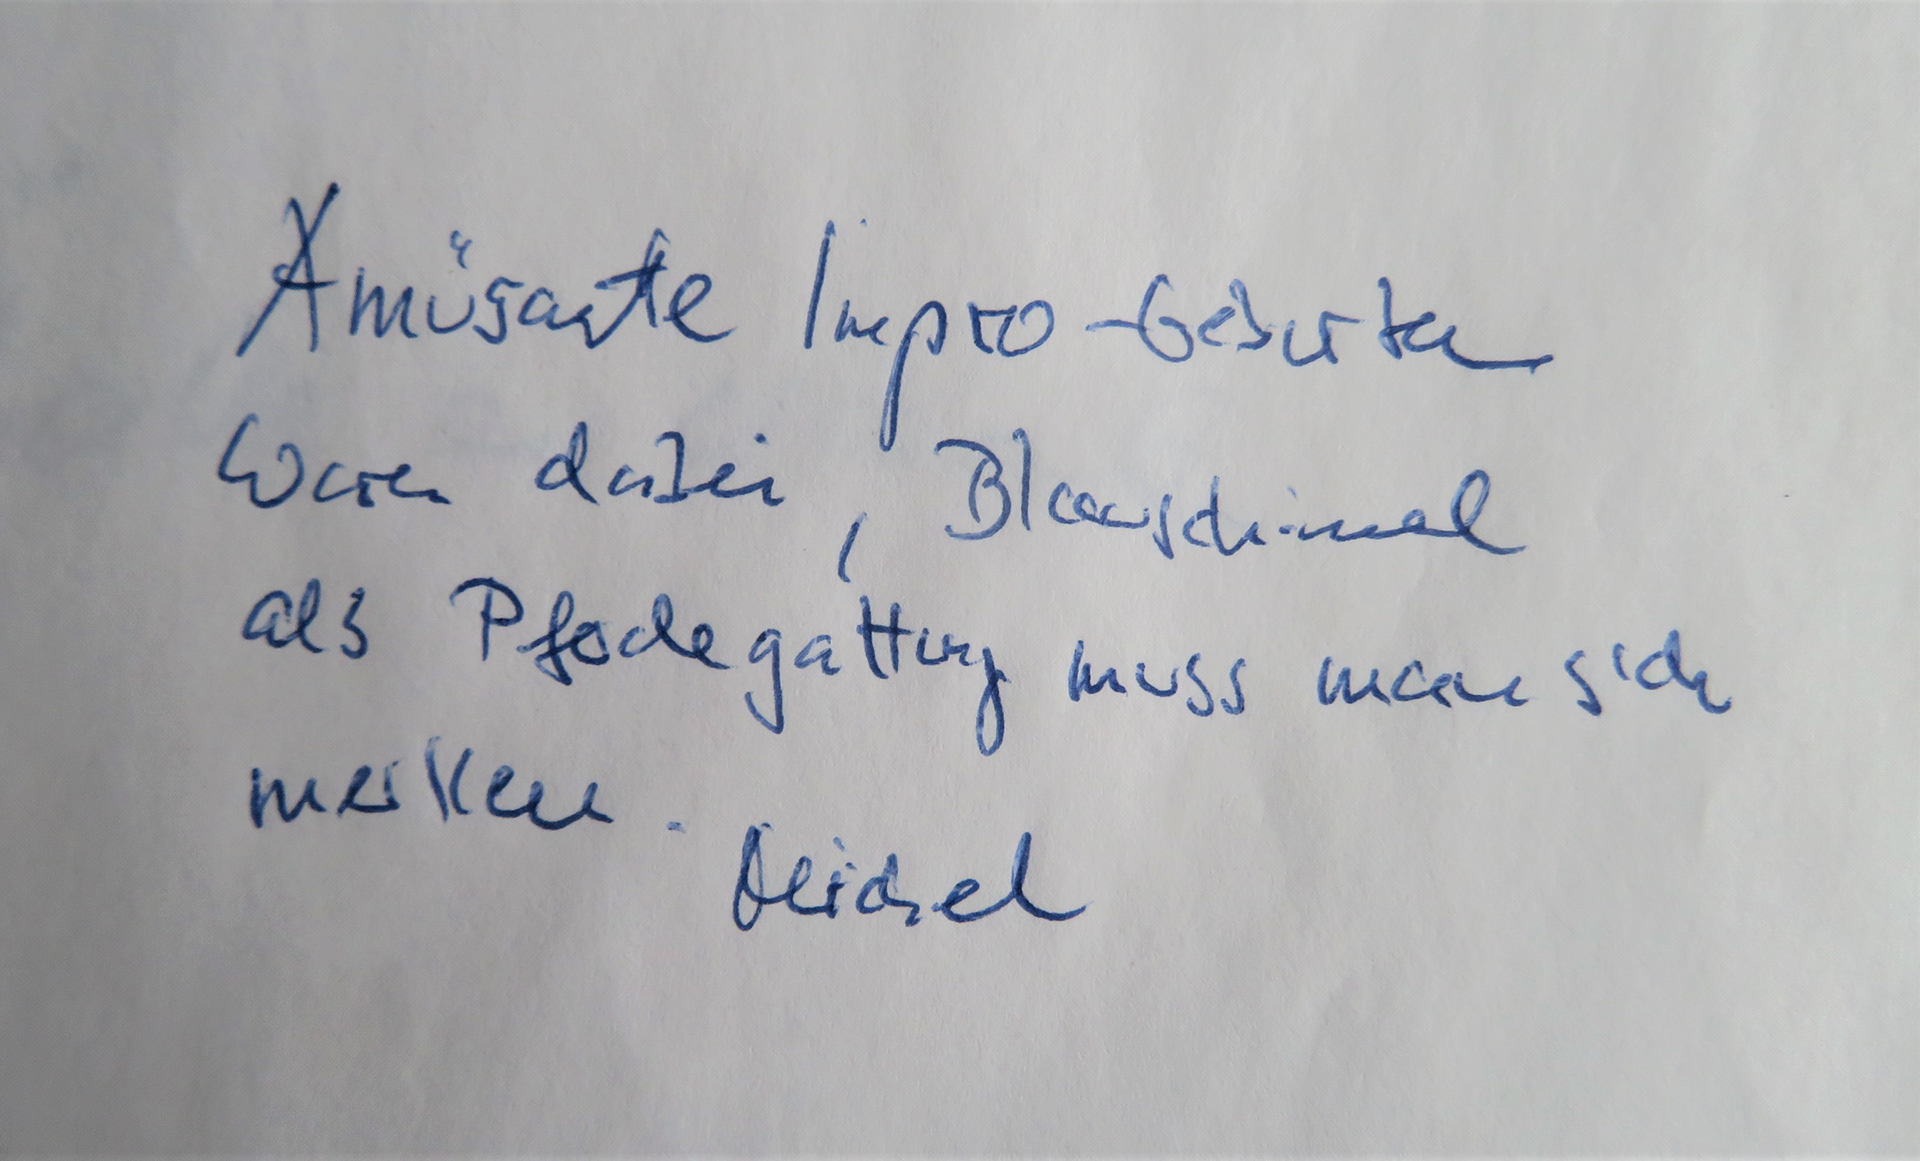 Amüsante Impro-Geburten
waren dabei, Blauschimmel
als Pferdegattung muss man sich
merken.
Michel